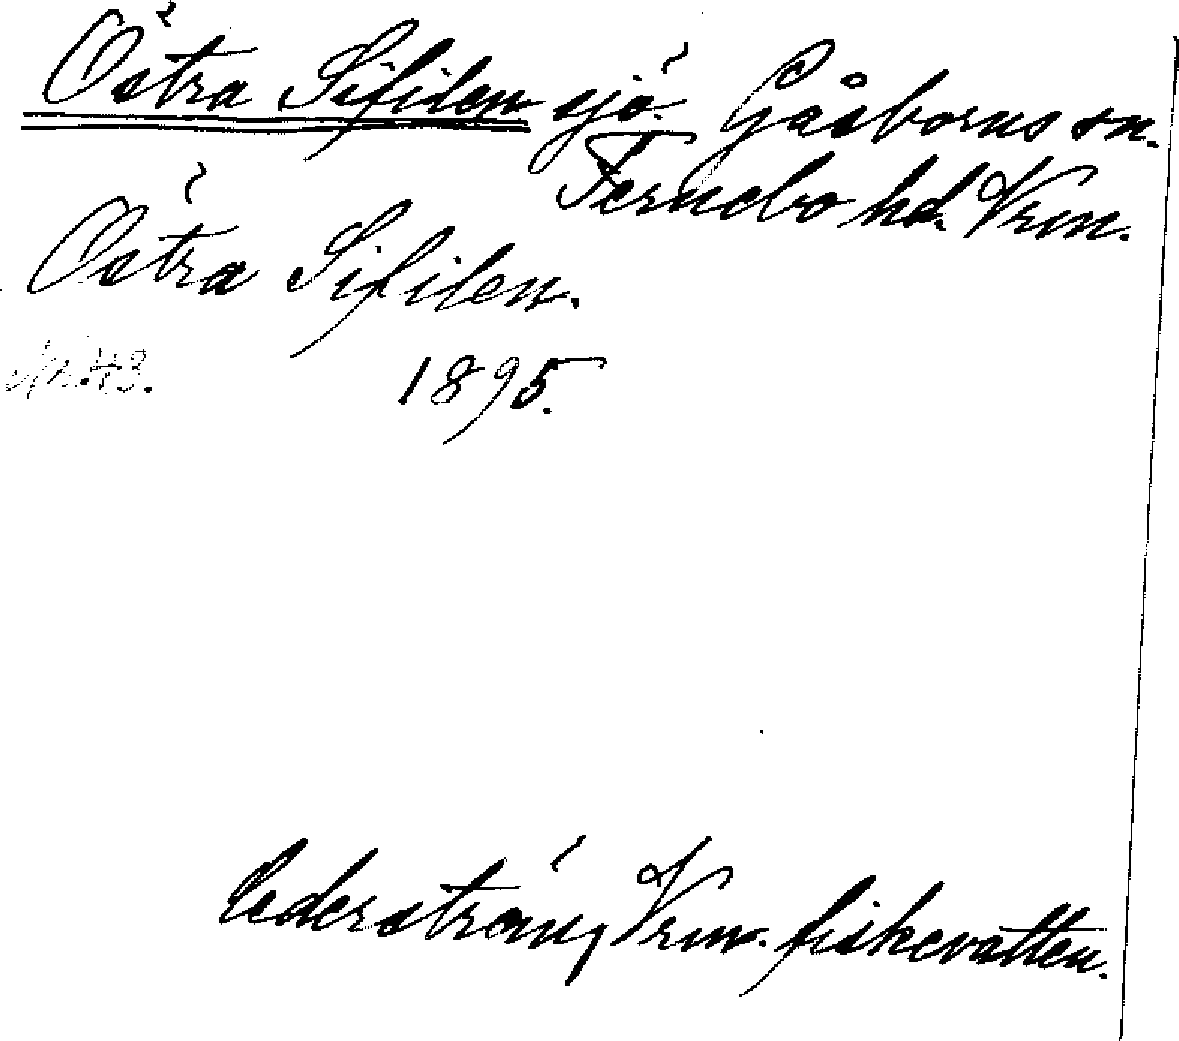 Östra Sifilen sjö. Gåsborns sn.
Fernebo hd. Vrm.
Östra Sifilen.
1895.
Cederström, Vrm. fiskevatten.